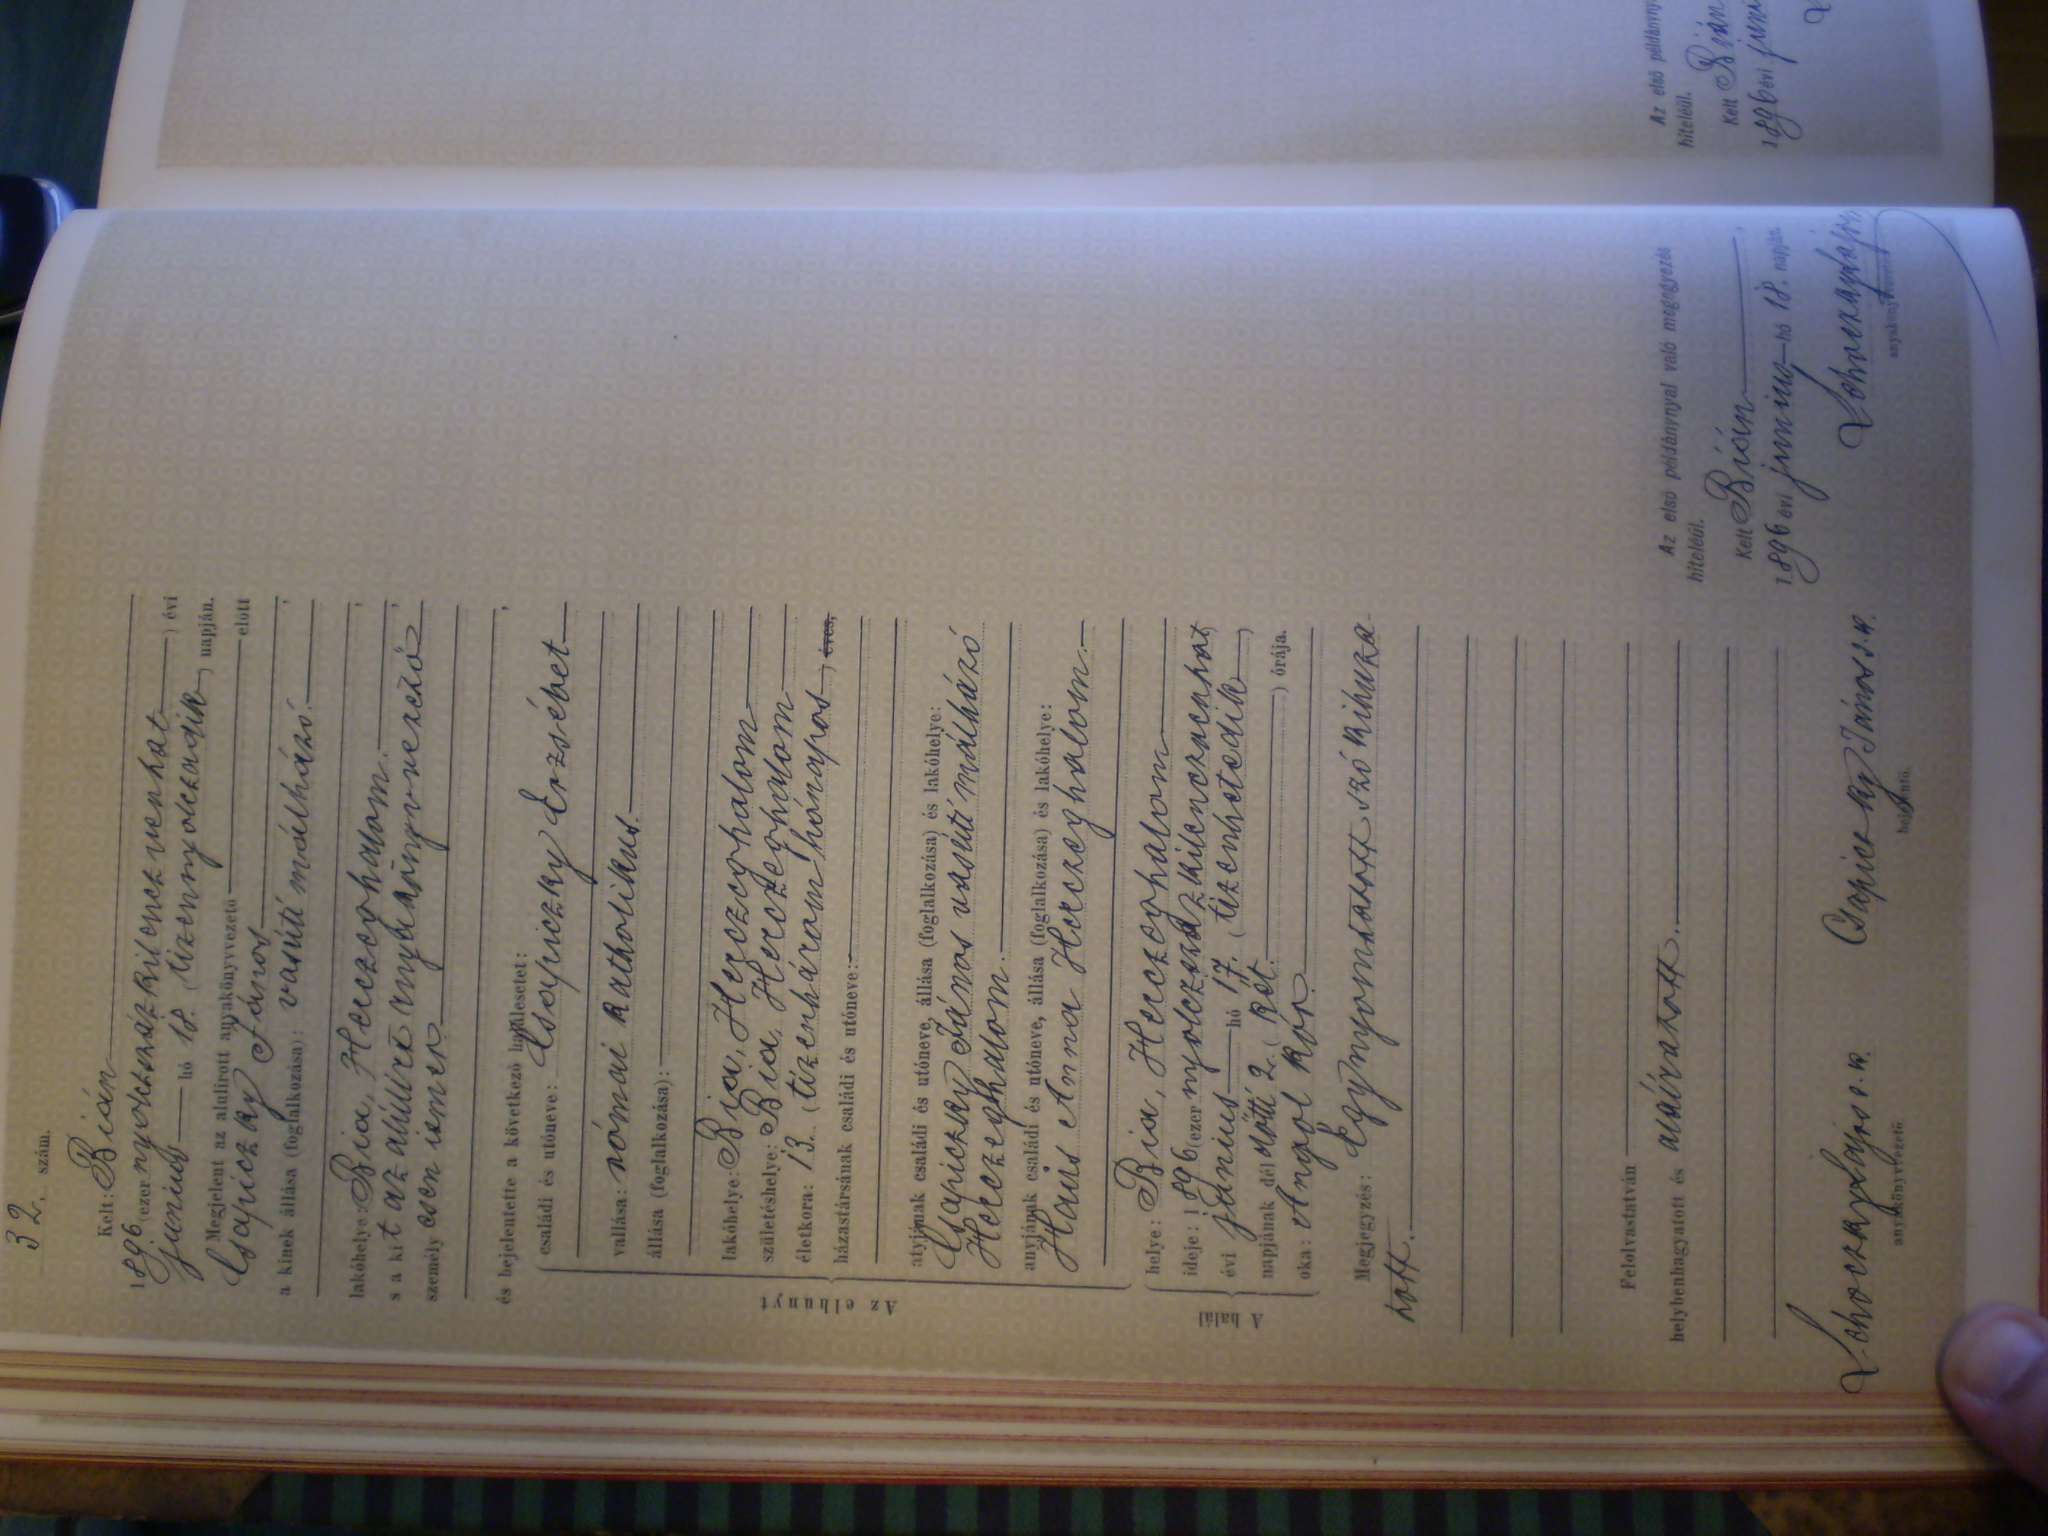 32. szám.
Kelt: Bián
1896 (ezer nyolczszázkilenczvenhat) évi
junius hó 18. (tizennyolczadik) napján.
Megjelent az alulírott anyakönyvvezető előtt
Csapiczky János
a kinek állása (foglalkozása): vasúti málházó.
lakóhelye: Bia, Herczeghalom.
s a kit az alulírt anyakönyvvezető
személyesen ismer,
és bejelentette a következő halálesetet:
Az elhunyt
családi és utóneve: Csapiczky Erzsébet
vallása: római katholikus.
állása (foglalkozása):
lakóhelye: Bia, Herczeghalom
születéshelye: Bia, Herczeghalom
életkora: 13. (tizenhárom hónapos) éves,
házastársának családi és utóneve:
atyjának családi és utóneve, állása (foglalkozása) és lakóhelye:
Csapiczky János vasúti málházó
Herczeghalom.
anyjának családi és utóneve, állása (foglalkozása) és lakóhelye:
Haus Anna Herczeghalom.
A halál
helye: Bia, Herczeghalom
ideje: 1896 (ezer nyolczszázkilenczvenhat)
évi junius hó 17. (tizenhetedik)
napjának dél előtti 2. (két) órája.
oka: Angol kór
Megjegyzés: Egy nyomtatott szó kihúza
tott.
Felolvastatván
helybenhagyatott és aláíratott.
Lohoczky Lajos s. k.
anyakönyvvezető.
Csapiczky János s. k.
bejelentő.
Az első példánnyal való megegyezés
hiteléül.
Kelt Bián,
1896 évi junius hó 18. napján.
anyakönyvvezető.
Az első példányny
hiteléül.
Kelt Bián
1896 évi juni